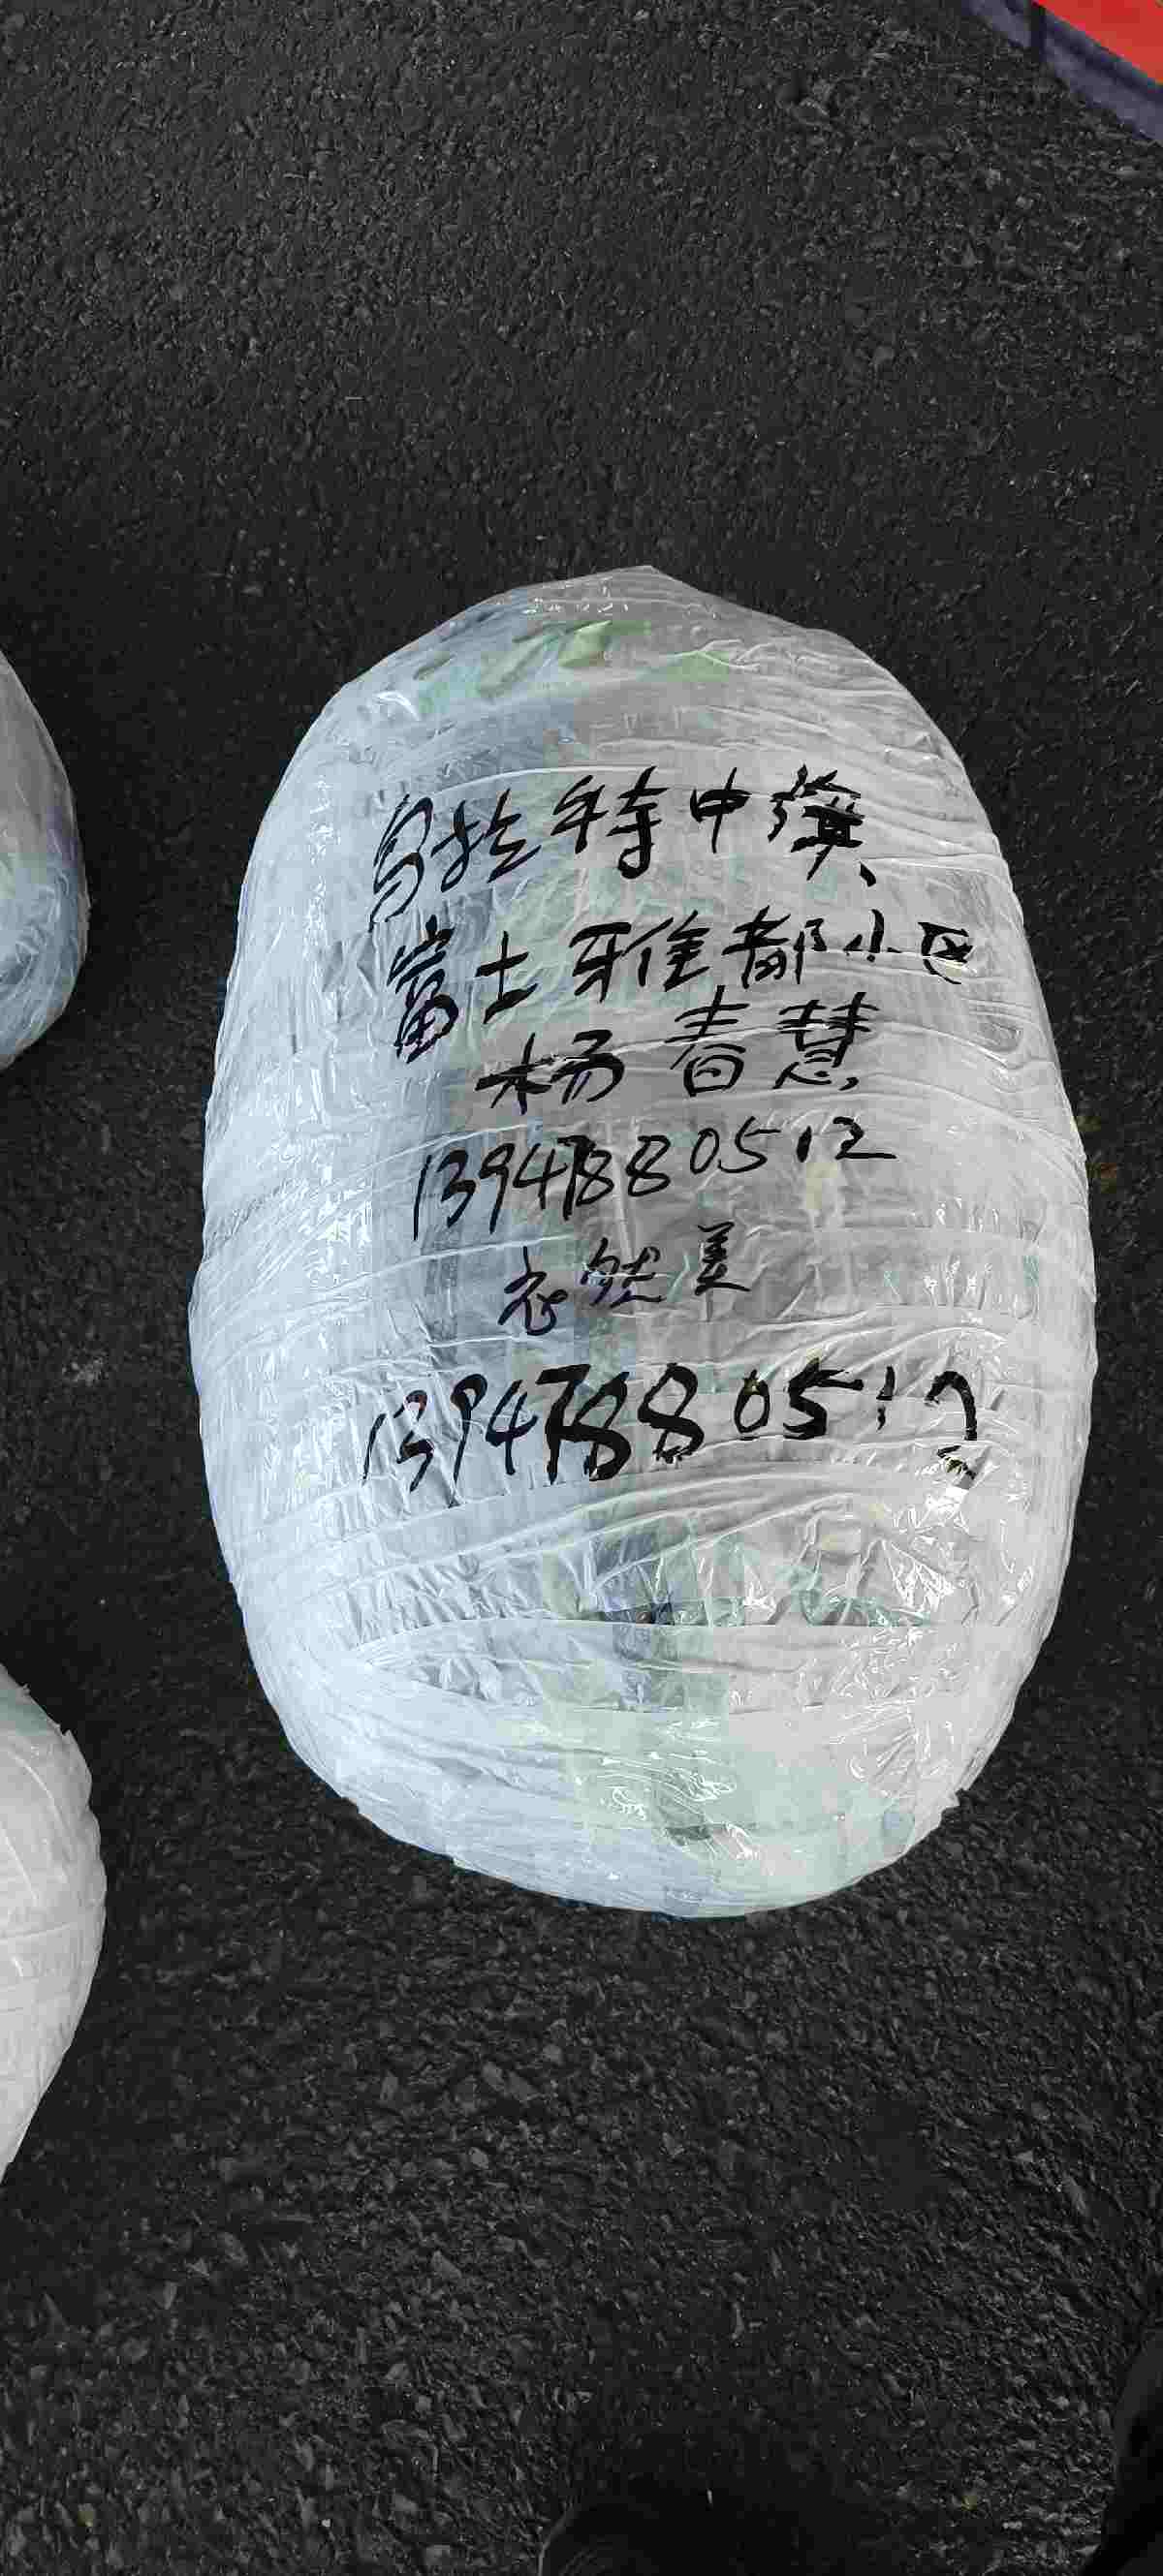 乌拉特中旗
富士雅佳都小区
杨春慧
13947880512
衣然美
13947880512